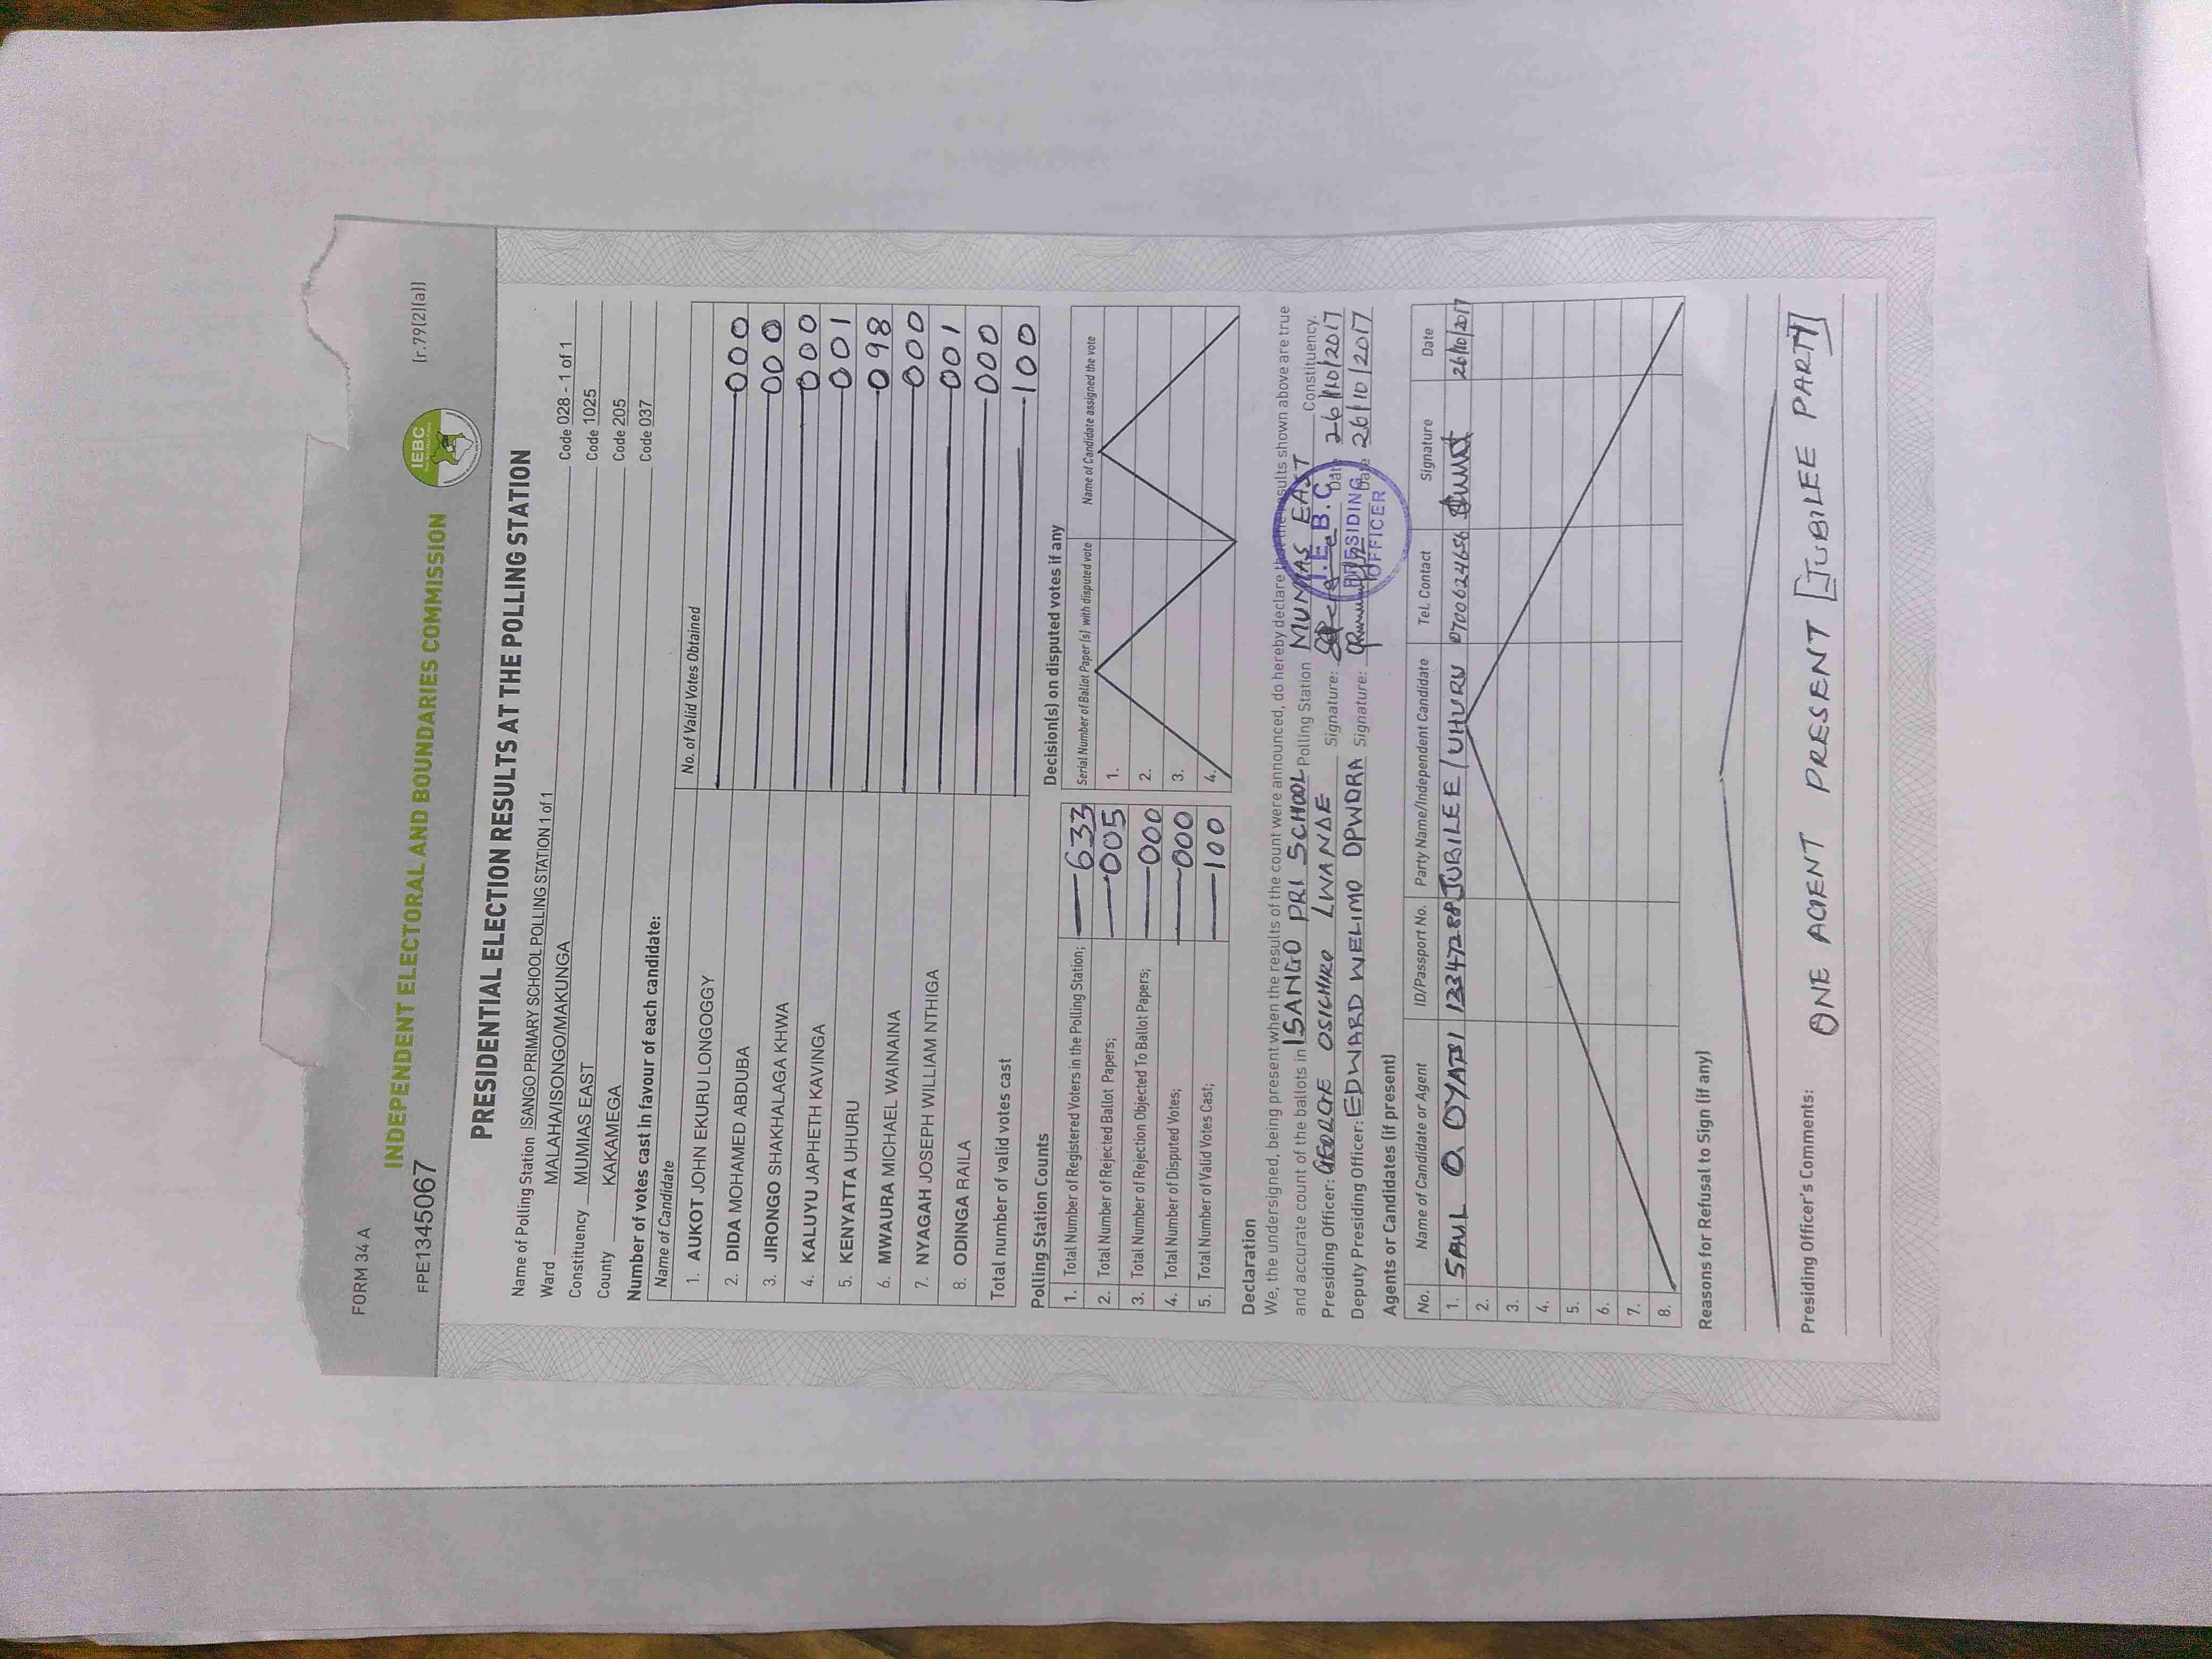 FORM 34 A
INDEPENDENT ELECTORAL AND BOUNDARIES COMMISSION
IEBC
(r.79(2)(a))
FPE1345067
PRESIDENTIAL ELECTION RESULTS AT THE POLLING STATION
Name of Polling Station ISANGO PRIMARY SCHOOL POLLING STATION 1 of 1 Code 028 - 1 of 1
Ward MALAHA/ISONGO/MAKUNGA Code 1025
Constituency MUMIAS EAST Code 205
County KAKAMEGA Code 037
Number of votes cast in favour of each candidate:
Name of Candidate No. of Valid Votes Obtained
1. AUKOT JOHN EKURU LONGOGGY 000
2. DIDA MOHAMED ABDUBA 000
3. JIRONGO SHAKHALAGA KHWA 000
4. KALUYU JAPHETH KAVINGA 001
5. KENYATTA UHURU 098
6. MWAURA MICHAEL WAINAINA 000
7. NYAGAH JOSEPH WILLIAM NTHIGA 001
8. ODINGA RAILA 000
Total number of valid votes cast 100
Polling Station Counts
1. Total Number of Registered Voters in the Polling Station; 633
2. Total Number of Rejected Ballot Papers; 005
3. Total Number of Rejection Objected To Ballot Papers; 000
4. Total Number of Disputed Votes; 000
5. Total Number of Valid Votes Cast; 100
Decision(s) on disputed votes if any
Serial Number of Ballot Paper (s) with disputed vote Name of Candidate assigned the vote
1.
2.
3.
4.
Declaration
We, the undersigned, being present when the results of the count were announced, do hereby declare that the results shown above are true
and accurate count of the ballots in ISANGO PRI SCHOOL Polling Station MUMIAS EAST Constituency.
Presiding Officer: GEORGE OSICHIRO LWANDE Signature: Date 26/10/2017
Deputy Presiding Officer: EDWARD WELIMO OPWORA Signature: Date 26/10/2017
I.E.B.C
PRESIDING
OFFICER
Agents or Candidates (if present)
No. Name of Candidate or Agent ID/Passport No. Party Name/Independent Candidate Tel. Contact Signature Date
1. SAUL O. OYATSI 13347288 JUBILEE/UHURU 0700624656 26/10/2017
2.
3.
4.
5.
6.
7.
8.
Reasons for Refusal to Sign (if any)
Presiding Officer's Comments:
ONE AGENT PRESENT [JUBILEE PARTY]